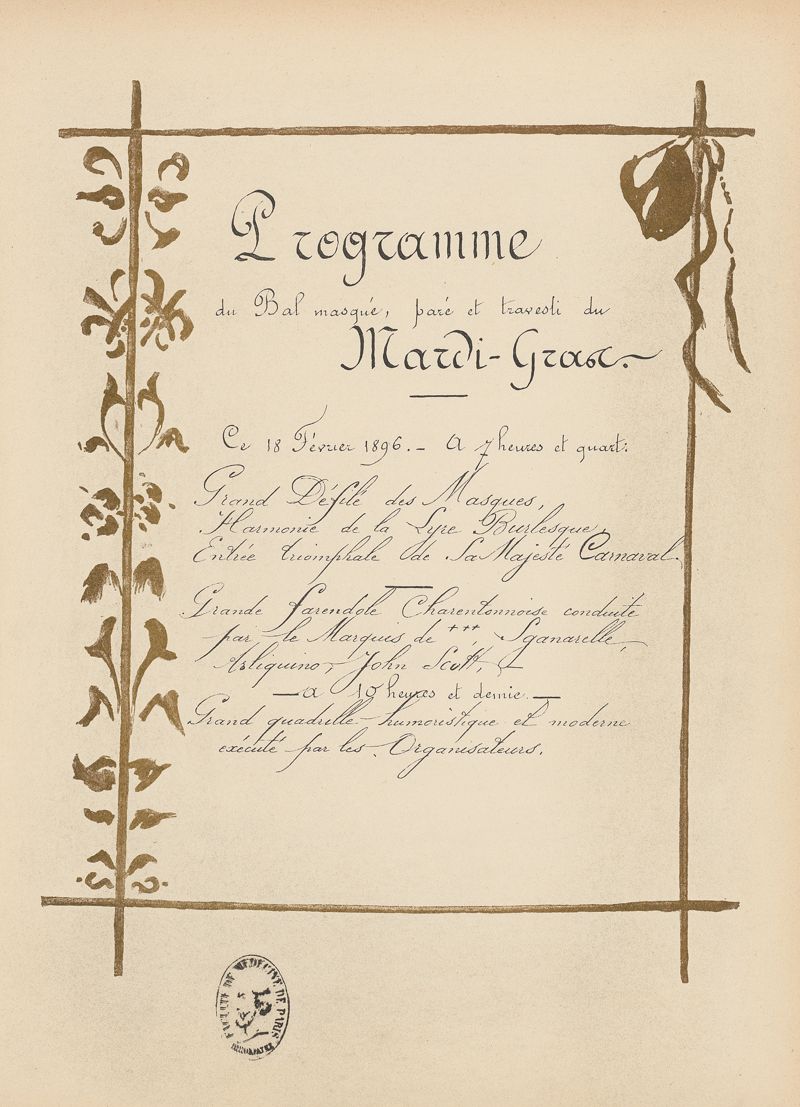 Programme
du Bal masqué, paré et travesti du
Mardi-Gras.
Ce 18 Février 1896. - A 7 heures et quart:
Grand Défilé des Masques,
Harmonie de la Lyre Burlesque,
Entrée triomphale de Sa Majesté Carnaval.
Grande farendole Charentonnoise conduite
par le Marquis de ***, Sganarelle,
Arliquino, John Scott,
— à 10 heures et demie. —
Grand quadrille humoristique et moderne
exécuté par les Organisateurs.
FACULTE DE MEDECINE DE PARIS